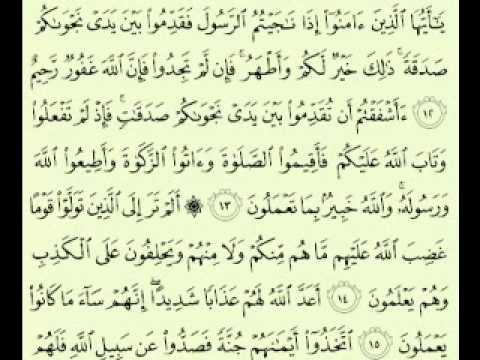 يَٰٓأَيُّهَا ٱلَّذِينَ ءَامَنُوٓا۟ إِذَا نَٰجَيْتُمُ ٱلرَّسُولَ فَقَدِّمُوا۟ بَيْنَ يَدَىْ نَجْوَىٰكُمْ
صَدَقَةً ۚ ذَٰلِكَ خَيْرٌ لَّكُمْ وَأَطْهَرُ ۚ فَإِن لَّمْ تَجِدُوا۟ فَإِنَّ ٱللَّهَ غَفُورٌ رَّحِيمٌ
١٢ ءَأَشْفَقْتُمْ أَن تُقَدِّمُوا۟ بَيْنَ يَدَىْ نَجْوَىٰكُمْ صَدَقَٰتٍ ۚ فَإِذْ لَمْ تَفْعَلُوا۟
وَتَابَ ٱللَّهُ عَلَيْكُمْ فَأَقِيمُوا۟ ٱلصَّلَوٰةَ وَءَاتُوا۟ ٱلزَّكَوٰةَ وَأَطِيعُوا۟ ٱللَّهَ
وَرَسُولَهُۥ ۚ وَٱللَّهُ خَبِيرٌۢ بِمَا تَعْمَلُونَ ١٣ ۞ أَلَمْ تَرَ إِلَى ٱلَّذِينَ تَوَلَّوْا۟ قَوْمًا
غَضِبَ ٱللَّهُ عَلَيْهِم مَّا هُم مِّنكُمْ وَلَا مِنْهُمْ وَيَحْلِفُونَ عَلَى ٱلْكَذِبِ
وَهُمْ يَعْلَمُونَ ١٤ أَعَدَّ ٱللَّهُ لَهُمْ عَذَابًا شَدِيدًا ۖ إِنَّهُمْ سَآءَ مَا كَانُوا۟
يَعْمَلُونَ ١٥ ٱتَّخَذُوٓا۟ أَيْمَٰنَهُمْ جُنَّةً فَصَدُّوا۟ عَن سَبِيلِ ٱللَّهِ فَلَهُمْ